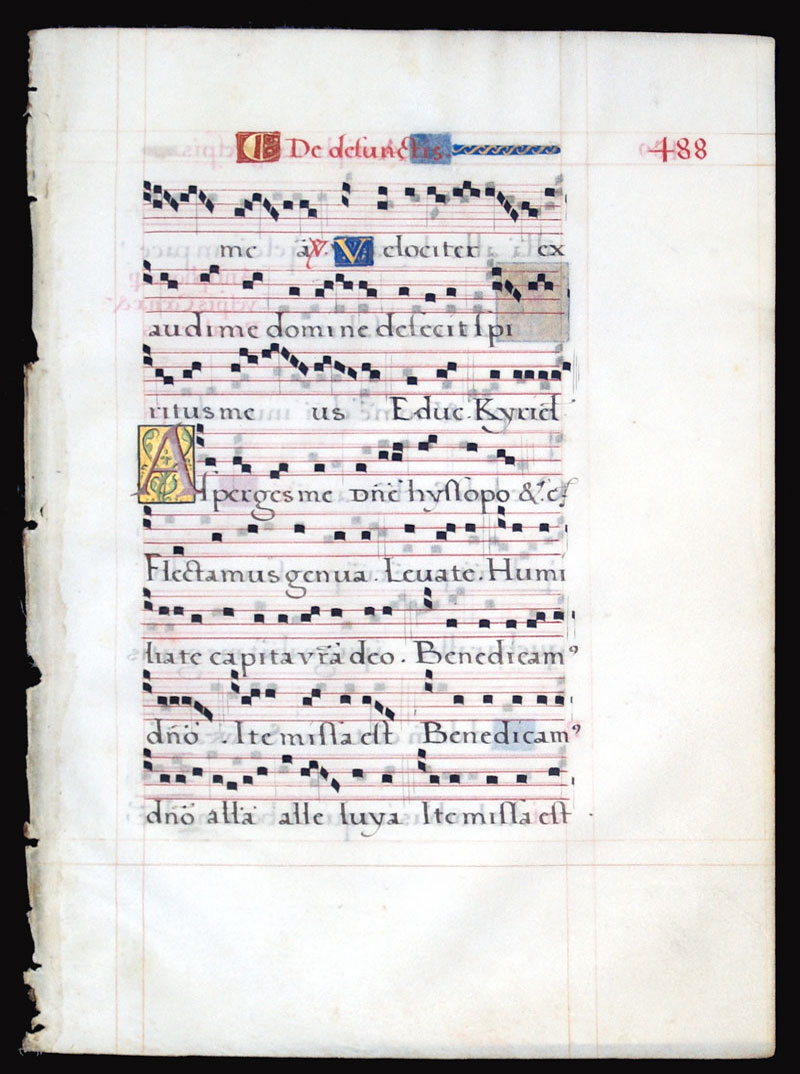 De defunctis. 488
me a℣. Velociter ex
audi me domine defecit spi
ritus me us Educ. Kyriel
Asperges me Dn̄e hyssopo &c
Flectamus genua. Leuate. Humi
liate capita vr̄a deo. Benedicam⁹
dn̄o Ite missa est Benedicam⁹
dn̄o alla alle luya Ite missa est